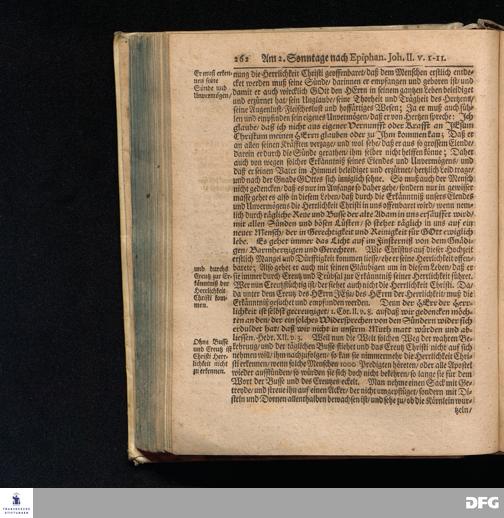 262 Am 2. Sonntage nach Epiphan. Joh. II. v. 1-11.
nung die Herrlichkeit Christi geoffenbaret/ daß dem Menschen erstlich entde-
cket werden muß seine Sünde/ darinnen er empfangen und gebohren ist/ und
damit er auch wircklich GOtt den HErrn in seinem gantzen Leben beleidiget
und erzürnet hat/ sein Unglaube/ seine Thorheit und Trägheit des Hertzens/
seine Augenlust/ Fleischeslust und hoffärtiges Wesen; Ja er muß auch füh-
len und empfinden sein eigenes Unvermögen/ daß er von Hertzen spreche: Ich
glaube/ daß ich nicht aus eigener Vernunfft oder Krafft an JEsum
Christum meinen HErrn glauben oder zu Ihm kommen kan; Daß er
an allen seinen Kräfften verzage/ und wol sehe/ daß er aus so grossem Elende/
darein er durch die Sünde gerathen/ ihm selber nicht helffen könne; Daher
auch von wegen solcher Erkäntniß seines Elendes und Unvermögens/ und
daß er seinen Vater im Himmel beleidiget und erzürnet/ hertzlich Leid trage/
und nach der Gnade GOttes sich inniglich sehne. So muß auch der Mensch
nicht gedencken/ daß es nur im Anfange so daher gehe/ sondern nur in gewisser
masse gehet es also in diesem Leben/ daß durch die Erkäntniß unsers Elendes
und Unvermögens die Herrlichkeit Christi in uns offenbaret wird/ wenn nem-
lich durch tägliche Reue und Busse der alte Adam in uns ersäuffet wird/
mit allen Sünden und bösen Lüsten/ so stehet täglich in uns auf ein
neuer Mensch/ der in Gerechtigkeit und Reinigkeit für GOtt ewiglich
lebe. Es gehet immer das Licht auf im Finsterniß von dem Gnädi-
gen/ Barmhertzigen und Gerechten. Wie Christus auf dieser Hochzeit
erstlich Mangel und Dürfftigkeit kommen liesse/ ehe er seine Herrlichkeit offen-
barete; Also gehet er auch mit seinen Gläubigen um in diesem Leben/ daß er
sie immer durch Creutz und Trübsal zur Erkäntniß seiner Herrlichkeit führet.
Wer nun Creutzflüchtig ist/ der siehet auch nicht die Herrlichkeit Christi. Da/
da unter dem Creutz des HErrn JEsu des HErrn der Herrlichkeit/ muß die
Erkäntniß gesuchet und empfunden werden. Denn der HErr der Herr-
lichkeit ist selbst gecreutziget/ 1. Cor. II. v. 8. auf daß wir gedencken möch-
ten an den/ der ein solches Widersprechen von den Sündern wider sich
erduldet hat/ daß wir nicht in unserm Muth matt würden und ab-
liessen. Hebr. XII. v. 3. Weil nun die Welt solchen Weg der wahren Be-
kehrung/ und der täglichen Busse fliehet und das Creutz Christi nicht auf sich
nehmen will/ ihm nachzufolgen/ so kan sie nimmermehr die Herrlichkeit Chri-
sti erkennen/ wenn solche Menschen 1000. Predigten höreten/ oder alle Apostel
wieder aufstünden/ so würden sie sich doch nicht bekehren/ so lange sie für dem
Wort der Busse und des Creutzes eckelt. Man nehme einen Sack mit Ge-
treyde/ und streue ihn auf einen Acker/ der nicht umgepflüget/ sondern mit Di-
steln und Dornen allenthalben bewachsen ist/ und sehe zu/ ob die Körnlein wur-
tzeln/
Er muß erken-
nen seine
Sünde und
Unvermögen/
und durchs
Creutz zur Er-
käntniß der
Herrlichkeit
Christi kom-
men.
Ohne Busse
und Creutz ist
Christi Herr-
lichkeit nicht
zu erkennen.
FRANCKESCHE
STIFTUNGEN
DFG